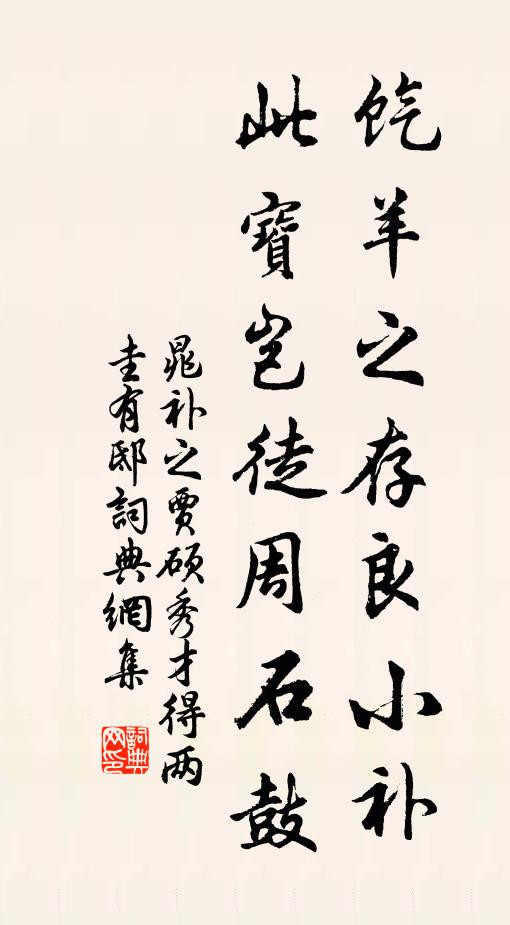 饩羊之存良小补
此寶岂徒周石鼓
晁补之贾硕秀才得两
圭有邸詞典網集
詞典网印